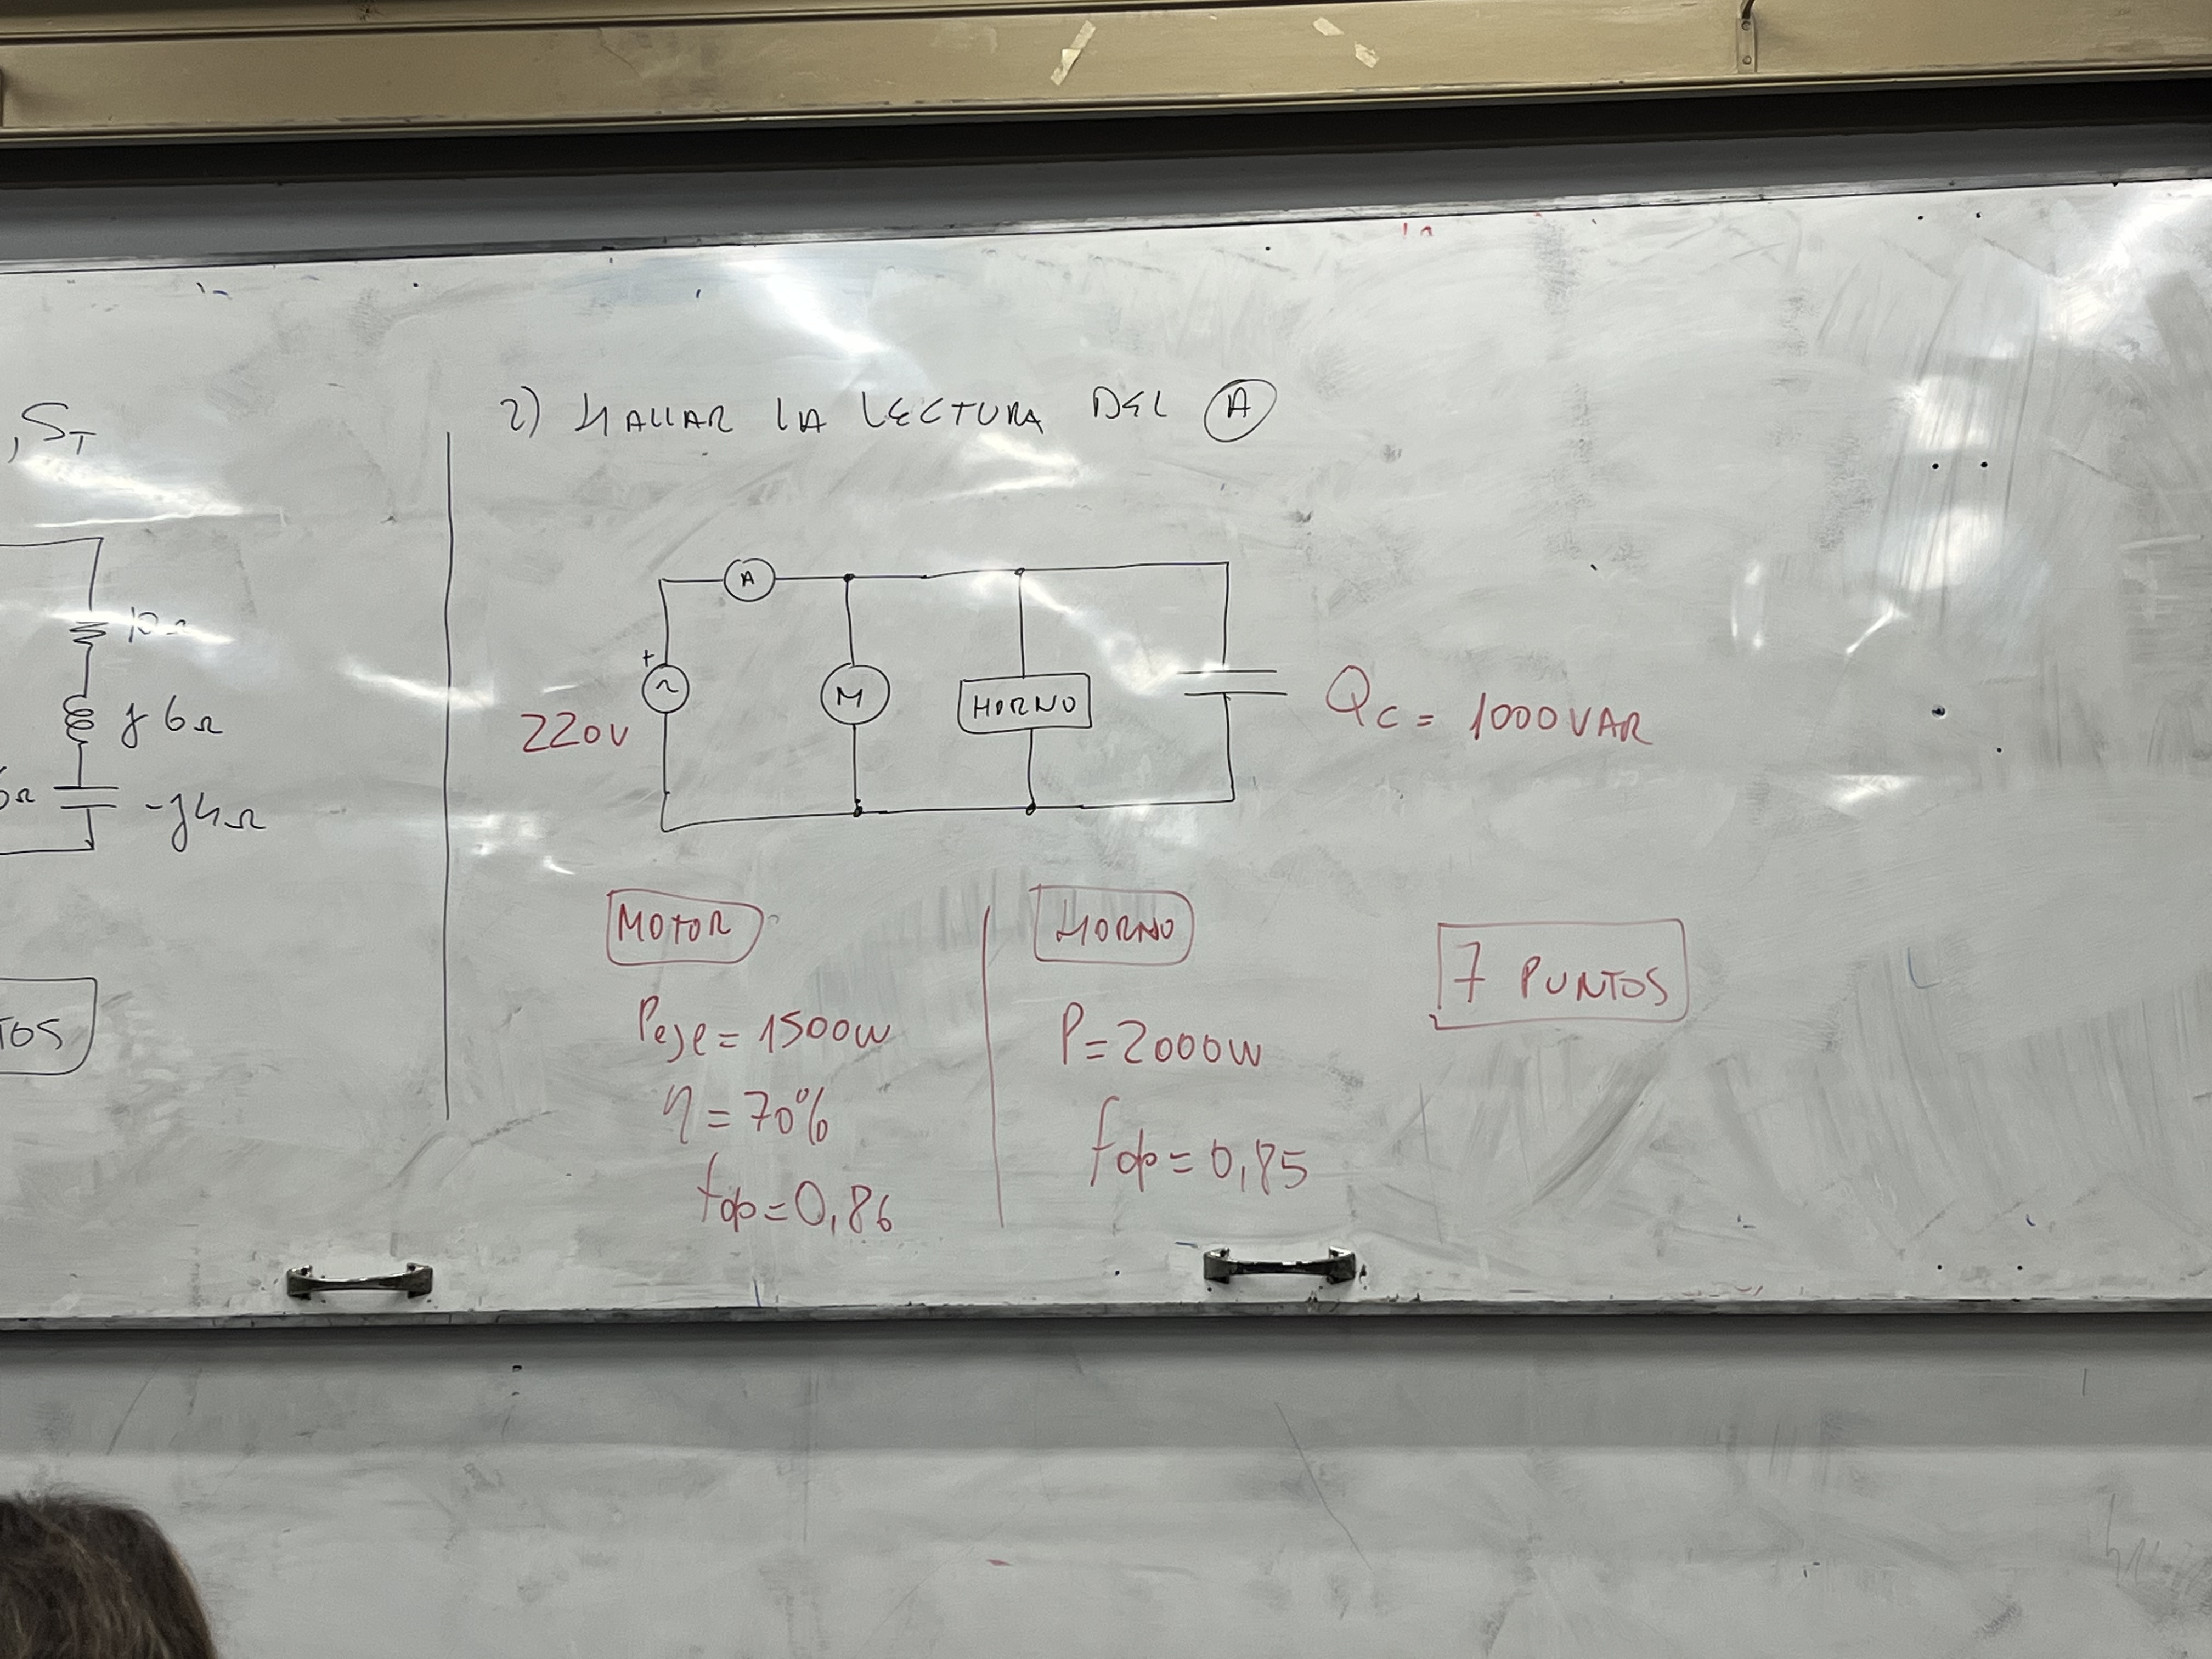 , S_T
10Ω
j6Ω
6Ω
-j4Ω
TOS
2) HALLAR LA LECTURA DEL A
A
+
~
220V
M
HORNO
Qc = 1000VAR
MOTOR
Peje = 1500W
η = 70%
fdp = 0,86
HORNO
P = 2000W
fdp = 0,85
7 PUNTOS